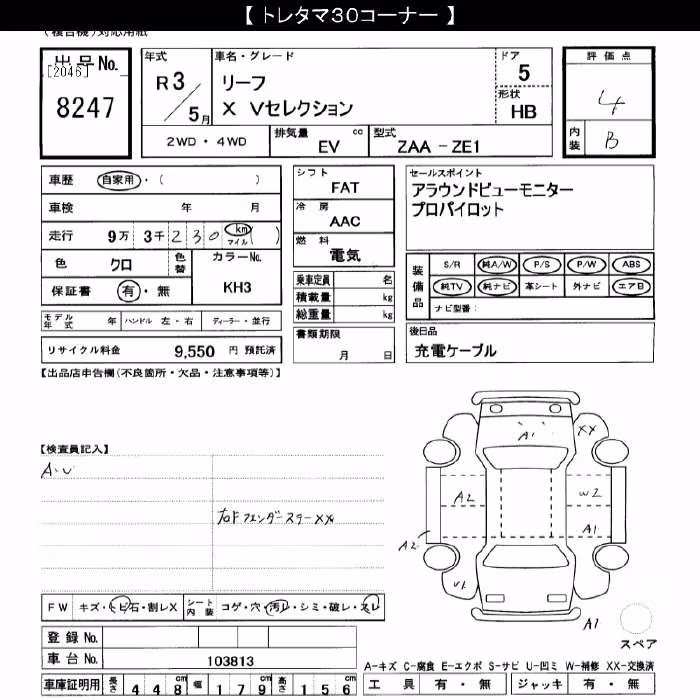 【 トレタマ30コーナー 】
(複合機)対応用紙
出品No.
[2046]
8247
年式
R3/5月
車名・グレード
リーフ
X Vセレクション
ドア
5
形状
HB
2WD・4WD
排気量 cc
EV
型式
ZAA - ZE1
評価点
4
内装 B
車歴 自家用・( )
車検 年 月
走行 9万 3千 230 km マイル ( )
色 クロ 色替
カラーNo.
KH3
保証書 有・無
モデル年式 年 ハンドル 左・右 ディーラー・並行
リサイクル料金 9,550 円 預託済
シフト
FAT
冷房
AAC
燃料
電気
乗車定員 名
積載量 kg
総重量 kg
書類期限
月 日
セールスポイント
アラウンドビューモニター
プロパイロット
装備品
S/R 純A/W P/S P/W ABS
純TV 純ナビ 革シート 外ナビ エアB
ナビ型番:
後日品
充電ケーブル
【出品店申告欄(不良箇所・欠品・注意事項等)】
【検査員記入】
A・U
右Fフェンダーステーxx
A1
XX
A2
W2
A1
A2
U1
A1
スペア
FW キズ・トビ石・割レX シート内装 コゲ・穴・汚レ・シミ・破レ・スレ
登録No.
車台No. 103813
車庫証明用 長さ 448cm 幅 179cm 高さ 156cm
A-キズ C-腐食 E-エクボ S-サビ U-凹ミ W-補修 XX-交換済
工具 有・無 ジャッキ 有・無